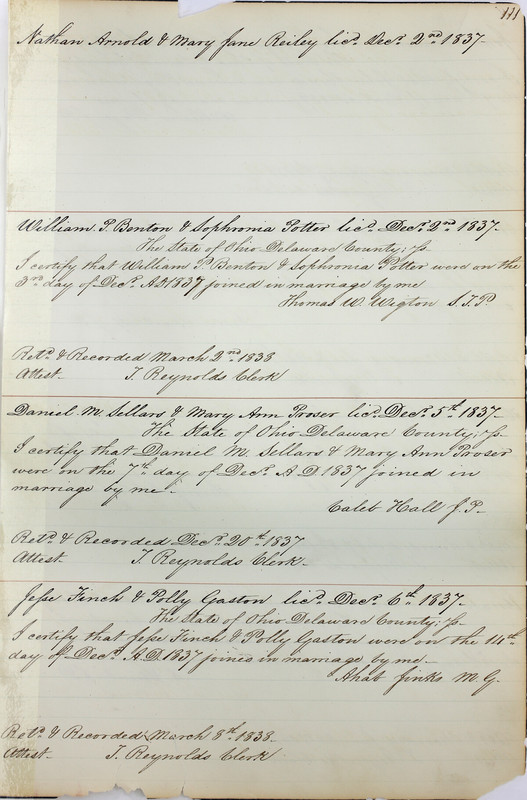 111
Nathan Arnold & Mary Jane Reiley licd. Decr. 2nd 1837-
William P. Benton & Sophronia Potter licd. Decr. 2nd 1837-
The State of Ohio Delaware County; ss.
I certify that William P. Benton & Sophronia Potter were on the
3rd day of Decr. AD 1837 joined in marriage by me
Thomas W. Wigton J.P.
Retd. & Recorded March 2nd 1838
Attest- T. Reynolds Clerk
Daniel M. Sellars & Mary Ann Proser licd. Decr. 5th 1837-
The State of Ohio Delaware County; ss-
I certify that Daniel M. Sellars & Mary Ann Proser
were on the 7th day of Decr. A D 1837 joined in
marriage by me-
Caleb Hall J.P-
Retd. & Recorded Decr. 20th 1837
Attest- T. Reynolds Clerk-
Jesse Finch & Polly Gaston licd. Decr. 6th 1837-
The State of Ohio Delaware County; ss-
I certify that Jesse Finch & Polly Gaston were on the 14th
day of Decr. A.D. 1837 joined in marriage by me-
Ahab Jinks M.G.
Retd. & Recorded March 8th 1838-
Attest- T. Reynolds Clerk